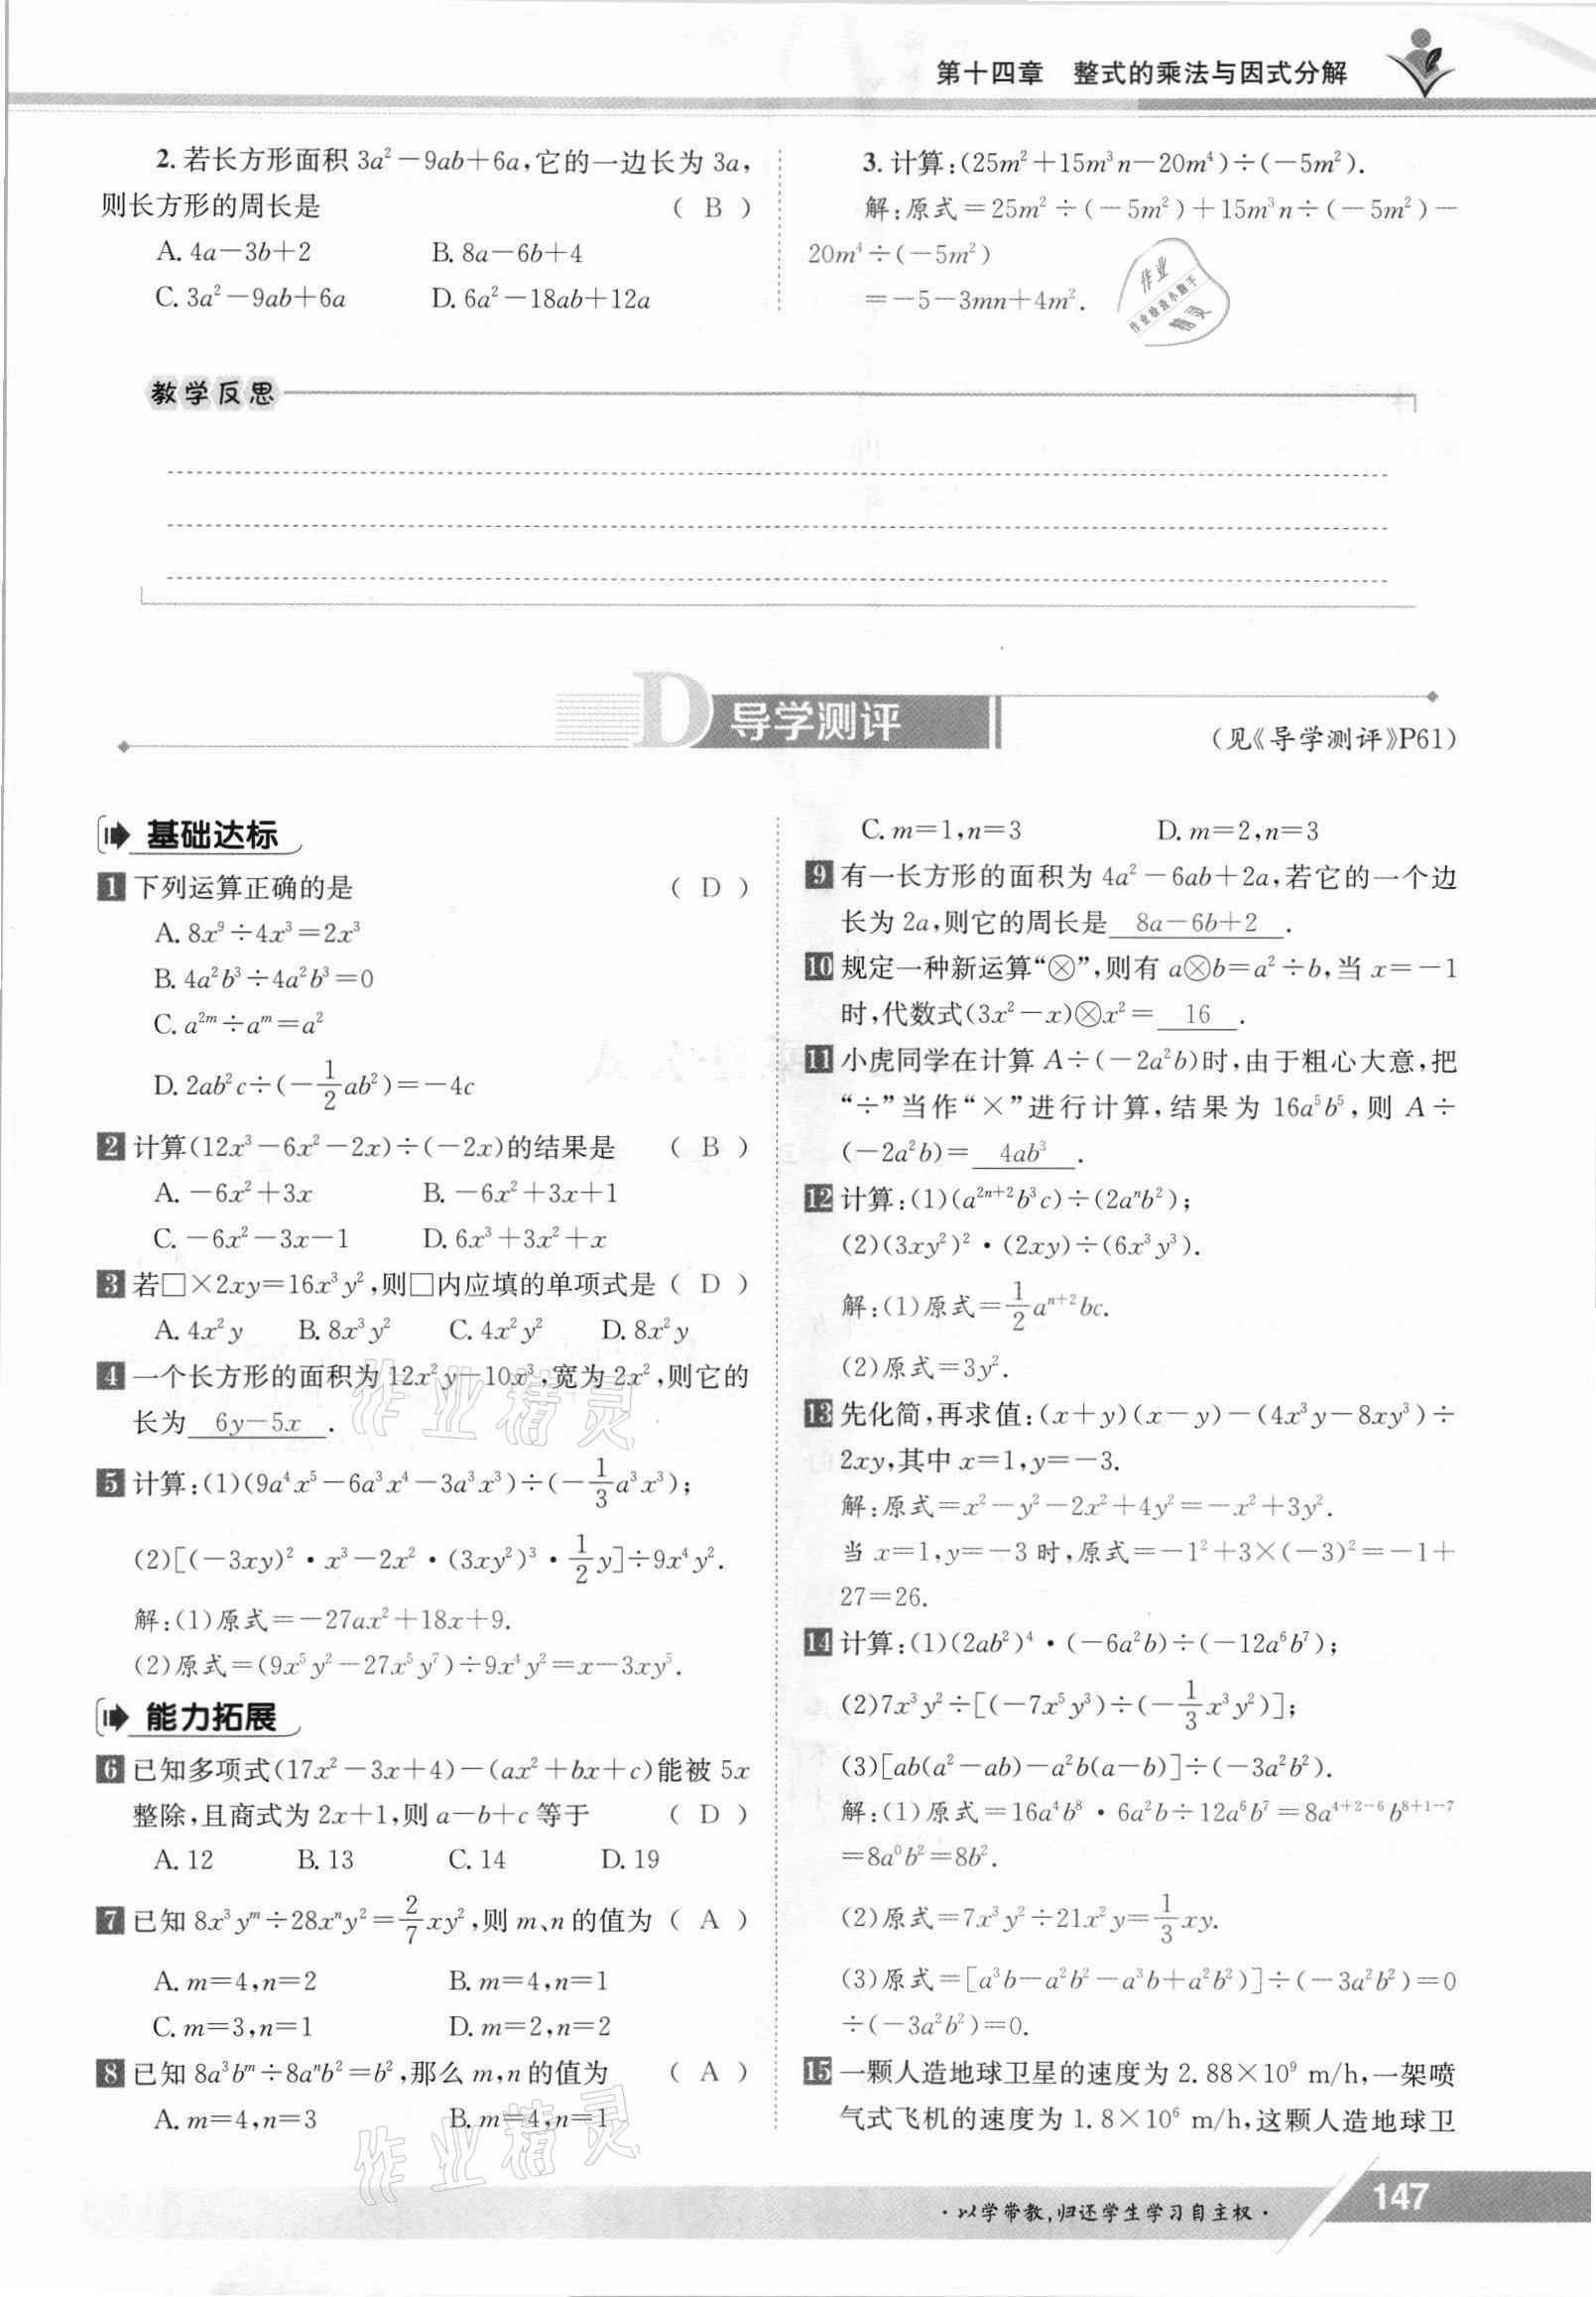 第十四章　整式的乘法与因式分解
2. 若长方形面积 3a²－9ab＋6a,它的一边长为 3a,
则长方形的周长是 ( B )
A. 4a－3b＋2　B. 8a－6b＋4
C. 3a²－9ab＋6a　D. 6a²－18ab＋12a
3. 计算:(25m²＋15m³n－20m⁴)÷(－5m²).
解:原式＝25m²÷(－5m²)＋15m³n÷(－5m²)－
20m⁴÷(－5m²)
＝－5－3mn＋4m².
作业
作业检查小助手
精灵
教学反思
D 导学测评
(见《导学测评》P61)
基础达标
1 下列运算正确的是 ( D )
A. 8x⁹÷4x³＝2x³
B. 4a²b³÷4a²b³＝0
C. a²ᵐ÷aᵐ＝a²
D. 2ab²c÷(－1/2ab²)＝－4c
2 计算(12x³－6x²－2x)÷(－2x)的结果是 ( B )
A. －6x²＋3x　B. －6x²＋3x＋1
C. －6x²－3x－1　D. 6x³＋3x²＋x
3 若□×2xy＝16x³y²,则□内应填的单项式是 ( D )
A. 4x²y　B. 8x³y²　C. 4x²y²　D. 8x²y
4 一个长方形的面积为 12x²y－10x³,宽为 2x²,则它的
长为 6y－5x .
5 计算:(1)(9a⁴x⁵－6a³x⁴－3a³x³)÷(－1/3a³x³);
(2)[(－3xy)²·x³－2x²·(3xy²)³·1/2y]÷9x⁴y².
解:(1)原式＝－27ax²＋18x＋9.
(2)原式＝(9x⁵y²－27x⁵y⁷)÷9x⁴y²＝x－3xy⁵.
能力拓展
6 已知多项式(17x²－3x＋4)－(ax²＋bx＋c)能被 5x
整除,且商式为 2x＋1,则 a－b＋c 等于 ( D )
A. 12　B. 13　C. 14　D. 19
7 已知 8x³yᵐ÷28xⁿy²＝2/7xy²,则 m、n 的值为 ( A )
A. m＝4,n＝2　B. m＝4,n＝1
C. m＝3,n＝1　D. m＝2,n＝2
8 已知 8a³bᵐ÷8aⁿb²＝b²,那么 m,n 的值为 ( A )
A. m＝4,n＝3　B. m＝4,n＝1
C. m＝1,n＝3　D. m＝2,n＝3
9 有一长方形的面积为 4a²－6ab＋2a,若它的一个边
长为 2a,则它的周长是 8a－6b＋2 .
10 规定一种新运算“⊗”,则有 a⊗b＝a²÷b,当 x＝－1
时,代数式(3x²－x)⊗x²＝ 16 .
11 小虎同学在计算 A÷(－2a²b)时,由于粗心大意,把
“÷”当作“×”进行计算,结果为 16a⁵b⁵,则 A÷
(－2a²b)＝ 4ab³ .
12 计算:(1)(a²ⁿ⁺²b³c)÷(2aⁿb²);
(2)(3xy²)²·(2xy)÷(6x³y³).
解:(1)原式＝1/2aⁿ⁺²bc.
(2)原式＝3y².
13 先化简,再求值:(x＋y)(x－y)－(4x³y－8xy³)÷
2xy,其中 x＝1,y＝－3.
解:原式＝x²－y²－2x²＋4y²＝－x²＋3y².
当 x＝1,y＝－3 时,原式＝－1²＋3×(－3)²＝－1＋
27＝26.
14 计算:(1)(2ab²)⁴·(－6a²b)÷(－12a⁶b⁷);
(2)7x³y²÷[(－7x⁵y³)÷(－1/3x³y²)];
(3)[ab(a²－ab)－a²b(a－b)]÷(－3a²b²).
解:(1)原式＝16a⁴b⁸·6a²b÷12a⁶b⁷＝8a⁴⁺²⁻⁶b⁸⁺¹⁻⁷
＝8a⁰b²＝8b².
(2)原式＝7x³y²÷21x²y＝1/3xy.
(3)原式＝[a³b－a²b²－a³b＋a²b²)]÷(－3a²b²)＝0
÷(－3a²b²)＝0.
15 一颗人造地球卫星的速度为 2.88×10⁹ m/h,一架喷
气式飞机的速度为 1.8×10⁶ m/h,这颗人造地球卫
作业精灵
作业精灵
·以学带教,归还学生学习自主权·
147